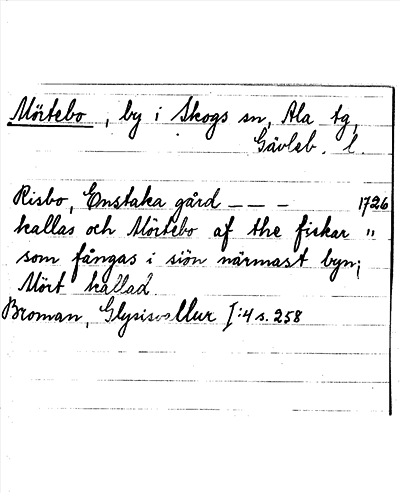 Mörtebo, by i Skogs sn, Ala tg,
Gävleb. l.
Risbo, Enstaka gård – – – 1726
kallas och Mörtebo af the fiskar "
som fångas i siön närmast byn;
Mört kallad.
Broman, Glysisvallur I:4 s. 258